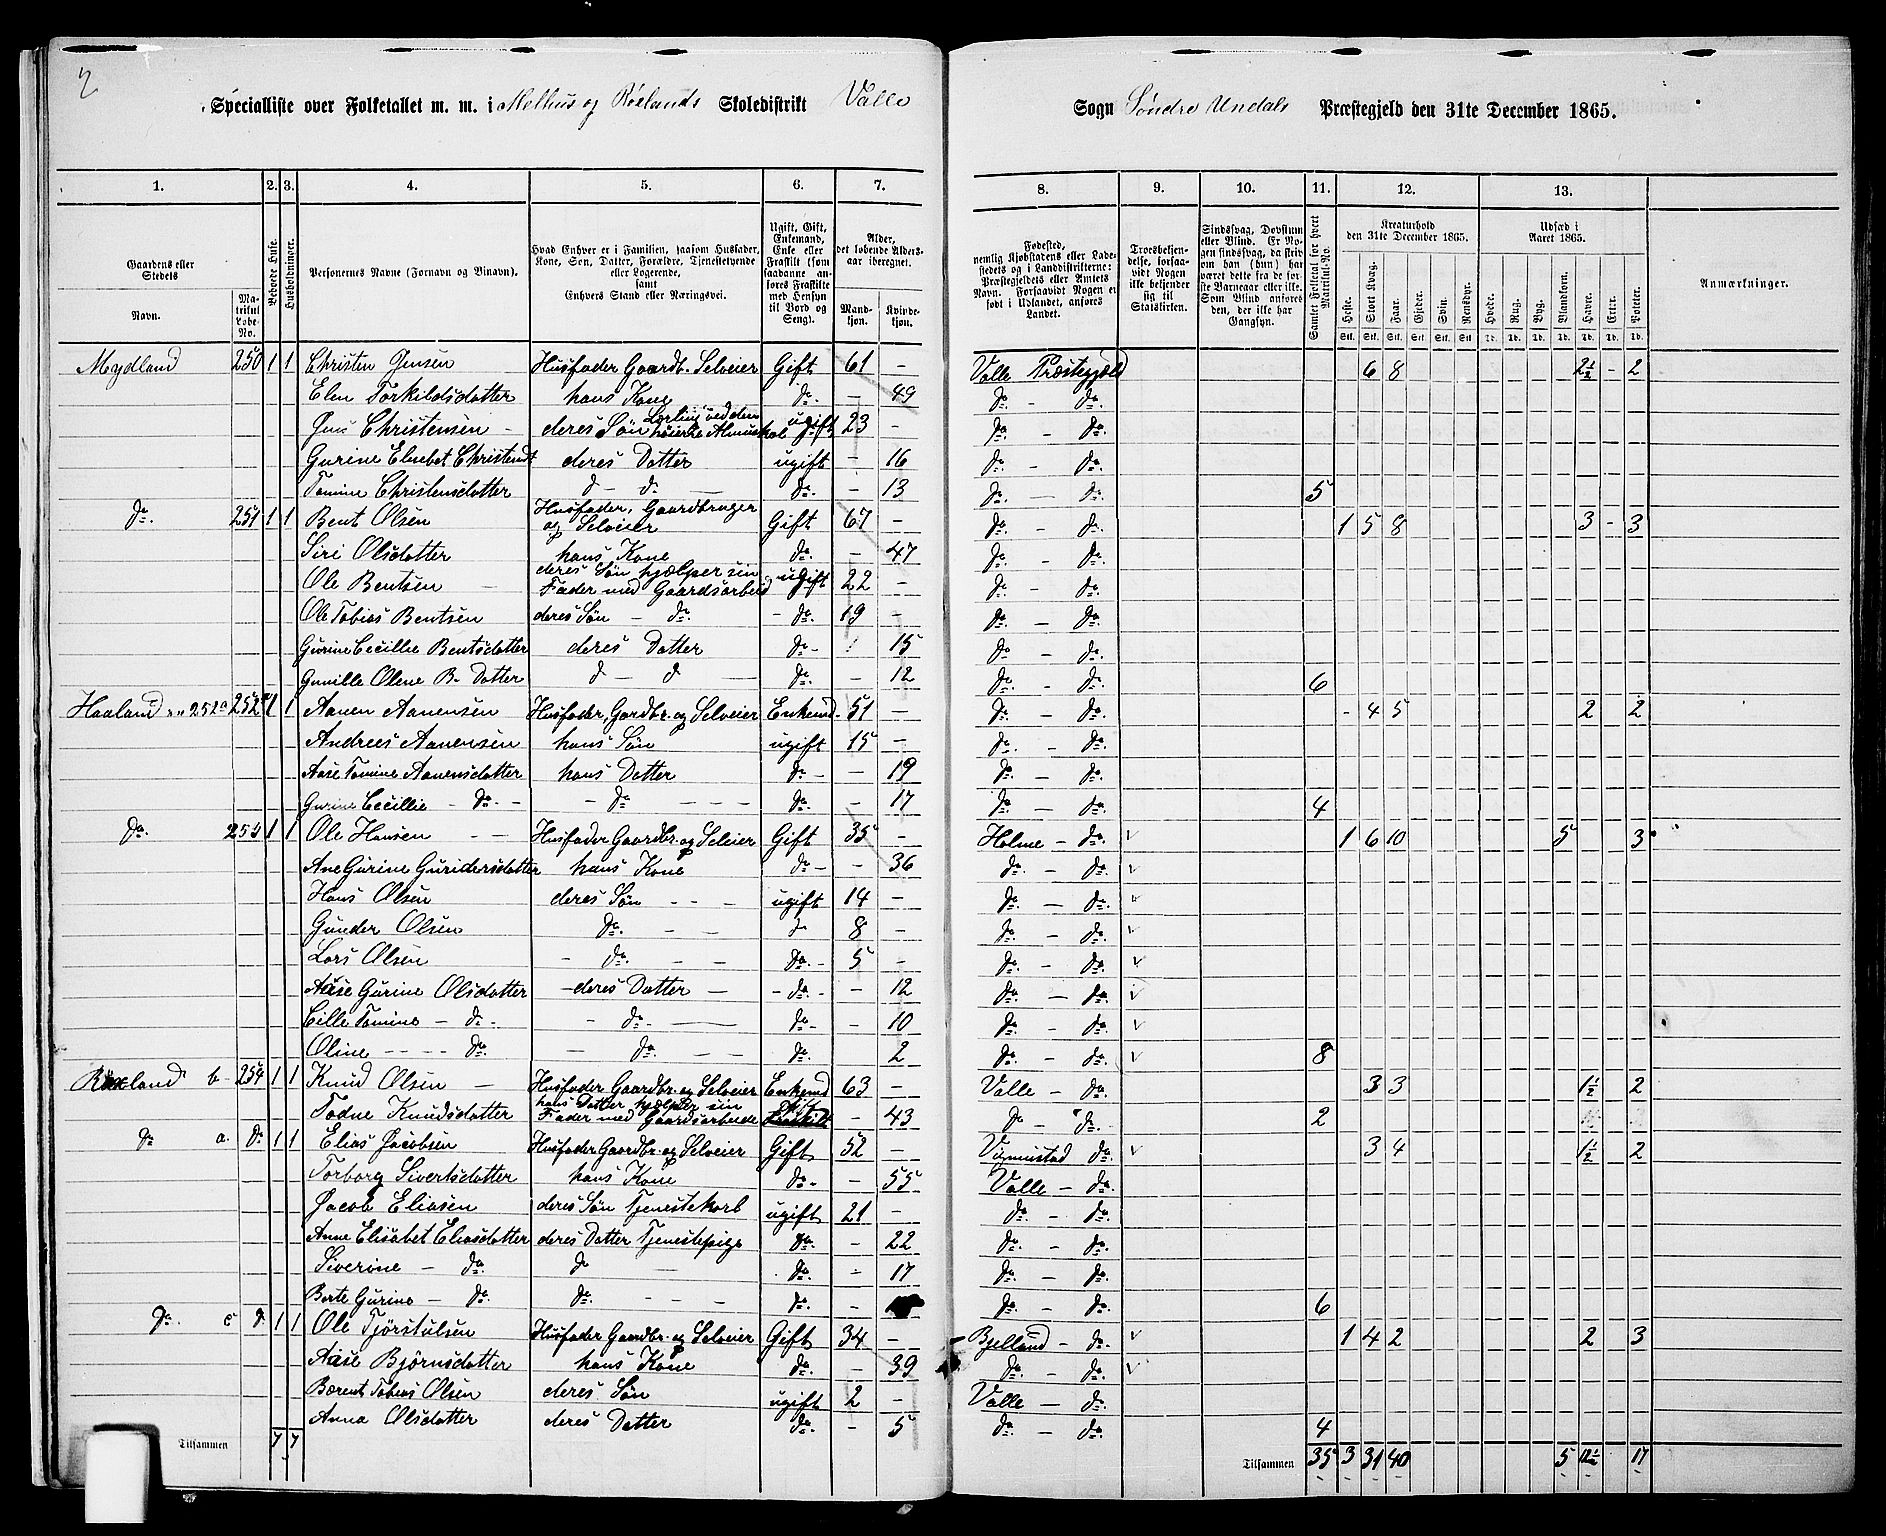 2
Specialliste over Folketallet m. m. i Melhus og Röelands Skoledistrikt Valle Sogn Söndre Undals Præstegjeld den 31te December 1865.
1. 2. 3. 4. 5. 6. 7. 8. 9. 10. 11. 12. 13.
Gaardens eller Stedets
Navn.
Matrikul Løbe-No.
Beboede Huse.
Husholdninger.
Personernes Navne (Fornavn og Binavn).
Hvad Enhver er i Familien, saasom Husfader, Kone, Søn, Datter, Forældre, Tjenestetyende eller Logerende, samt Enhvers Stand eller Næringsvei.
Ugift, Gift, Enkemand, Enke eller Fraskilt (som saadanne anføres Fraskilte med Hensyn til Bord og Seng).
Alder, det løbende Aldersaar iberegnet.
Mandkjøn. Kvindekjøn.
Fødested, nemlig Kjøbstadens eller Ladestedets og i Landdistrikterne: Præstegjeldets eller Amtets Navn. Forsaavidt Nogen er født i Udlandet, anføres Landet.
Troesbekjendelse, forsaavidt Nogen ikke bekjender sig til Statskirken.
Sindssvag, Døvstum eller Blind. Er Nogen sindssvag, da skriv om han (hun) har været dette fra de første Barneaar eller ikke. Som Blind anføres den, der ikke har Gangsyn.
Samlet Folketal for hvert Matrikul-No.
Kreaturhold den 31te December 1865.
Heste. Stort Kvæg. Faar. Gjeder. Sviin. Rensdyr.
Udsæd i Aaret 1865.
Hvede. Rug. Byg. Blandkorn. Havre. Erter. Poteter.
Anmærkninger.
Mydland 250 1 1 Christen Jensen Husfader Gaardb. Selveier Gift 61 - Valle Præstegjeld 6 8 2½ - 2
Elen Torkildsdatter hans Kone do. - 49 do. - do.
Jens Christensen - deres Søn Lærling ved den høiere Almueskol ugift 23 - do. - do.
Gurine Elisebet Christensdt deres Datter ugift - 16 do. - do.
Tomine Christensdatter d - do - do. - 13 do. - do. 5
do. 251 1 1 Bent Olsen Husfader, Gaardbruger og Selveier Gift 67 - do. - do. 1 5 8 3 - 3
Siri Olsdatter hans Kone do. - 47 do. - do.
Ole Bentsen - deres Søn hjælper sin Fader med Gaardsarbeid ugift 22 - do. - do.
Ole Tobias Bentsen deres Søn - do. - do. 19 - do. - do.
Gurine Cecillie Bentsdatter deres Datter do. - 15 do. - do.
Gunille Olene B. Datter d - d - do. - 12 do. - do. 6
Haaland 252 1 1 Aanen Aanensen Husfader, Gardbr. og Selveier Enkemd. 51 - do. - do. - 4 5 2 2
Andrees Aanensen hans Søn ugift 15 - do. - do.
Aase Tomine Aanensdatter hans Datter do - - 19 do. - do.
Gurine Cecillie - do. - - do - - - do. - 17 do. - do. 4
do. 253 1 1 Ole Hansen - - Husfader Gaardbr. og Selveier Gift 35 - Holme - do. v 1 6 10 5 3
Ane Gurine Guridersdatter hans Kone do - - 36 do. - do. v
Hans Olsen deres Søn - - - ugift 14 - do. - do. v
Gunder Olsen do. - - 8 - do. - do. v
Lars Olsen - do. - - do. - 5 - do. - do. v
Aase Gurine Olsdatter - deres Datter - - do. - - 12 do. - do. v
Cille Tomine - do. - do. - do. - - 10 do. - do. v
Oline - - - - do. - do. - do. 2 do. - do. v 8
Röeland b - 254 1 1 Knud Olsen - Husfader Gaardbr. og Selveier Enkemd 63 - Valle - do. 3 3 1½ 2
Todne Knudsdatter hans Datter hjælper sin Fader med Gaardsarbeide - 43 do - do. 2
do a. do 1 1 Elias Jacobsen Husfader Gaardbr. og Selveier Gift 52 - Vigmostad do. v 3 4 1½ 2
Torborg Sivertsdatter hans Kone do. - - 55 Valle - do.
Jacob Eliasen deres Søn Tjenestekarl ugift 21 - do. - do.
Anne Elisabet Eliasdatter deres Datter Tjenestepige do. - 22 do. - do.
Siverine - do. do - do. - 17 do. - do.
Berte Gurine - do. do. - - - do. - do. - do. 6
do. c d. 1 1 Ole Tjörstulsen Husfader Gaardbr. og Selveier Gift 34 - Bjelland - do. v 1 4 2 2 3
Aase Bjørnsdatter hans Kone do. - 39 do. - do. v
Berent Tobias Olsen deres Søn ugift 2 - Valle - do.
Anna Olsdatter deres Datter do. - 5 do. - do. 4
Tilsammen 7 7 Tilsammen 35 3 31 40 5 12½ 17